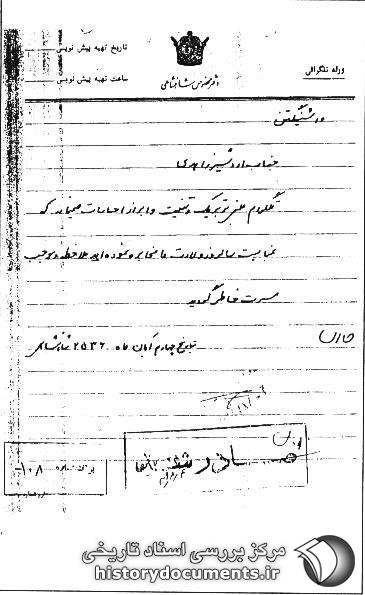 ورقه تلگرافی
دفتر مخصوص شاهنشاهی
تاریخ تهیه پیش نویس
ساعت تهیه پیش نویس
واشنگتن
جناب اردشیر زاهدی
تلگرام متضمن تبریک و تهنیت و ابراز احساسات صمیمانه که
بمناسبت سالروز ولادت ما مخابره نموده اید ملاحظه و موجب
مسرت خاطر گردید
بتاریخ چهارم آبان ماه ۲۵۳۶ شاهنشاهی
صادر شد
۱۰۸
مرکز بررسی اسناد تاریخی
historydocuments.ir